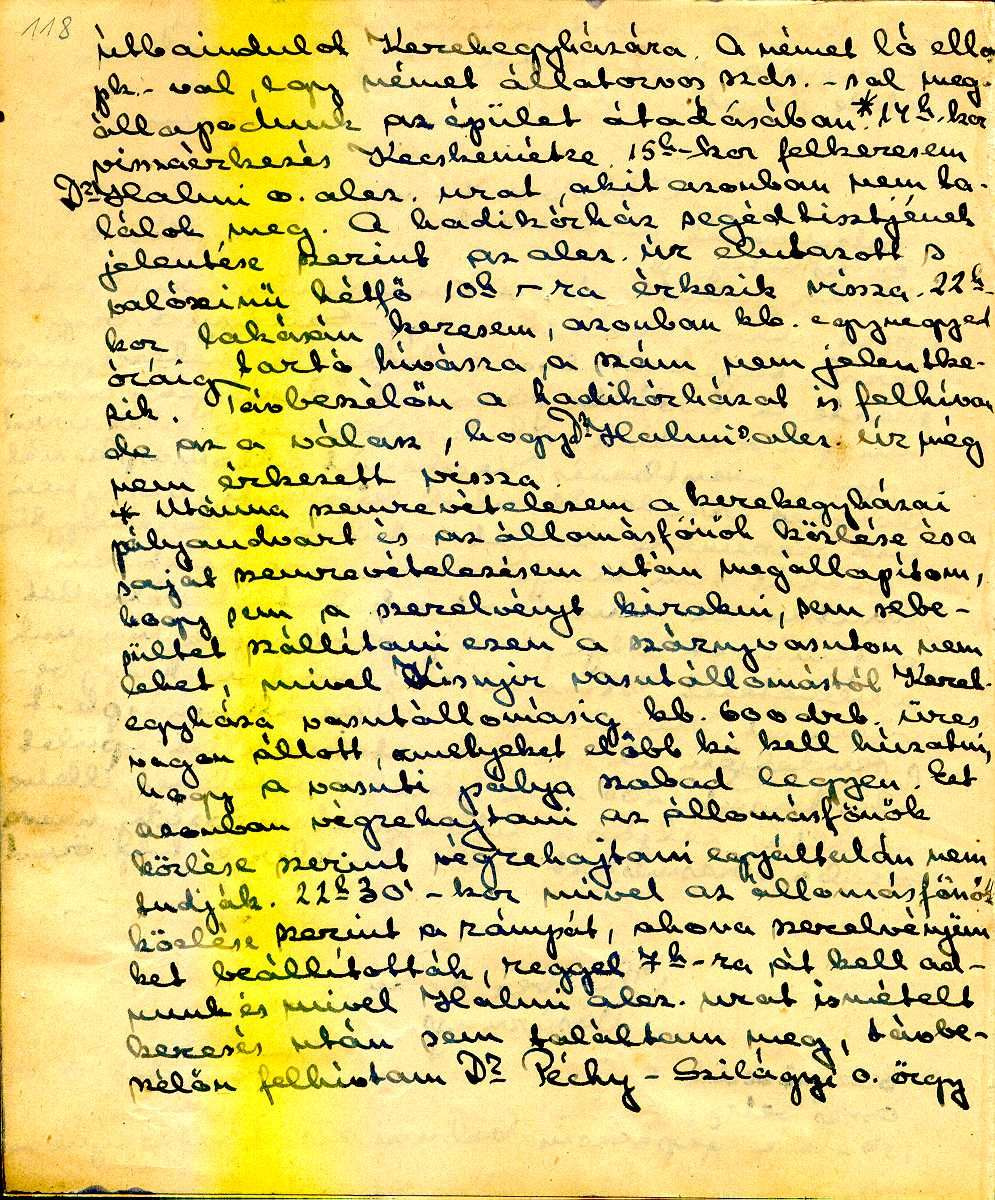 118
útbaindulok Kerekegyházára. A német ló ella
pk.- val, egy német állatorvos szds. - sal meg-
állapodunk az épület átadásában.* 14h-kor
visszaérkezés Kecskemétre. 15h-kor felkeresem
Dr. Halmi o. alez. urat, akit azonban nem ta-
lálok meg. A hadikórház segédtisztjének
jelentése szerint az alez. úr elutazott s
valószinü hétfő 10h - ra érkezik vissza. 22h-
kor lakásán keresem, azonban kb. egynegyed
óráig tartó hívásra, a szám nem jelentke-
zik. Távbeszélőn a hadikórházat is felhívom
de az a válasz, hogy Dr. Halmi o. alez. úr még
nem érkezett vissza.
* Utánna szemrevételezem a kerekegyházai
pályaudvart és az állomásfőnök közlése és a
saját szemrevételezésem után megállapítom,
hogy sem a szerelvényt kirakni, sem sebe-
sültet szállítani ezen a szárnyvasuton nem
lehet, mivel Kisnyir vasutállomástól Kerek-
egyháza vasutállomásig kb. 600 drb. üres
vagon állott, amelyeket előbb ki kell húzatni,
hogy a vasuti pálya szabad legyen. Ezt
azonban végrehajtani az állomásfőnök
közlése szerint végrehajtani egyáltalán nem
tudják. 22h 30' - kor mivel az állomásfőnök
közlése szerint a rámpát, ahova szerelvényün
ket beállították, reggel 7h - ra át kell ad-
nunk és mivel Halmi alez. urat ismételt
keresés után sem találtam meg, távbe-
szélőn felhívtam Dr. Péchy - Szilágyi o. őrgy